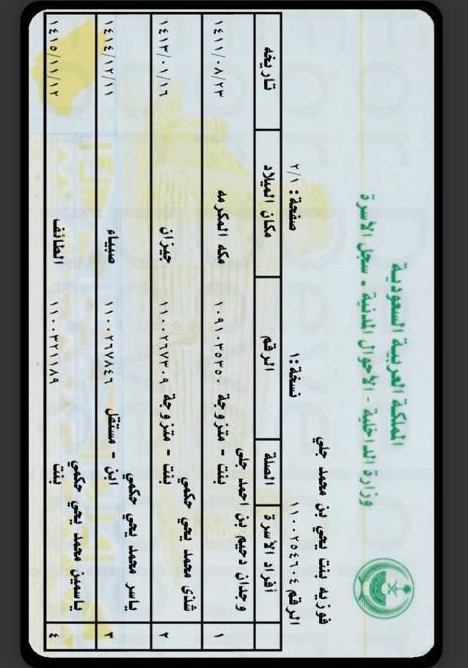 المملكة العربية السعودية
وزارة الداخلية - الأحوال المدنية - سجل الأسرة
فوزيه بنت يحي بن محمد جلي
الرقم ١١٠٠٢٥٤٦٠٤ نسخة: ١ صفحة: ٢/١
أفراد الأسرة الصلة الرقم مكان الميلاد تاريخه
١ وجدان دحيم بن احمد جلي
بنت - متزوجة ١٠٩١٠٣٥٣٥٠ مكه المكرمه ١٤١١/٠٨/٢٣
٢ شذى محمد يحي حكمي
بنت - متزوجة ١١٠٠٢٦٧٣٠٩ جيزان ١٤١٣/٠١/١٦
٣ ياسر محمد يحي حكمي
ابن - مستقل ١١٠٠٢٦٧٨٤٦ صبياء ١٤١٤/١٢/١١
٤ ياسمين محمد يحي حكمي
بنت ١١٠٠٣٢١١٨٩ الطائف ١٤١٥/١١/١٢